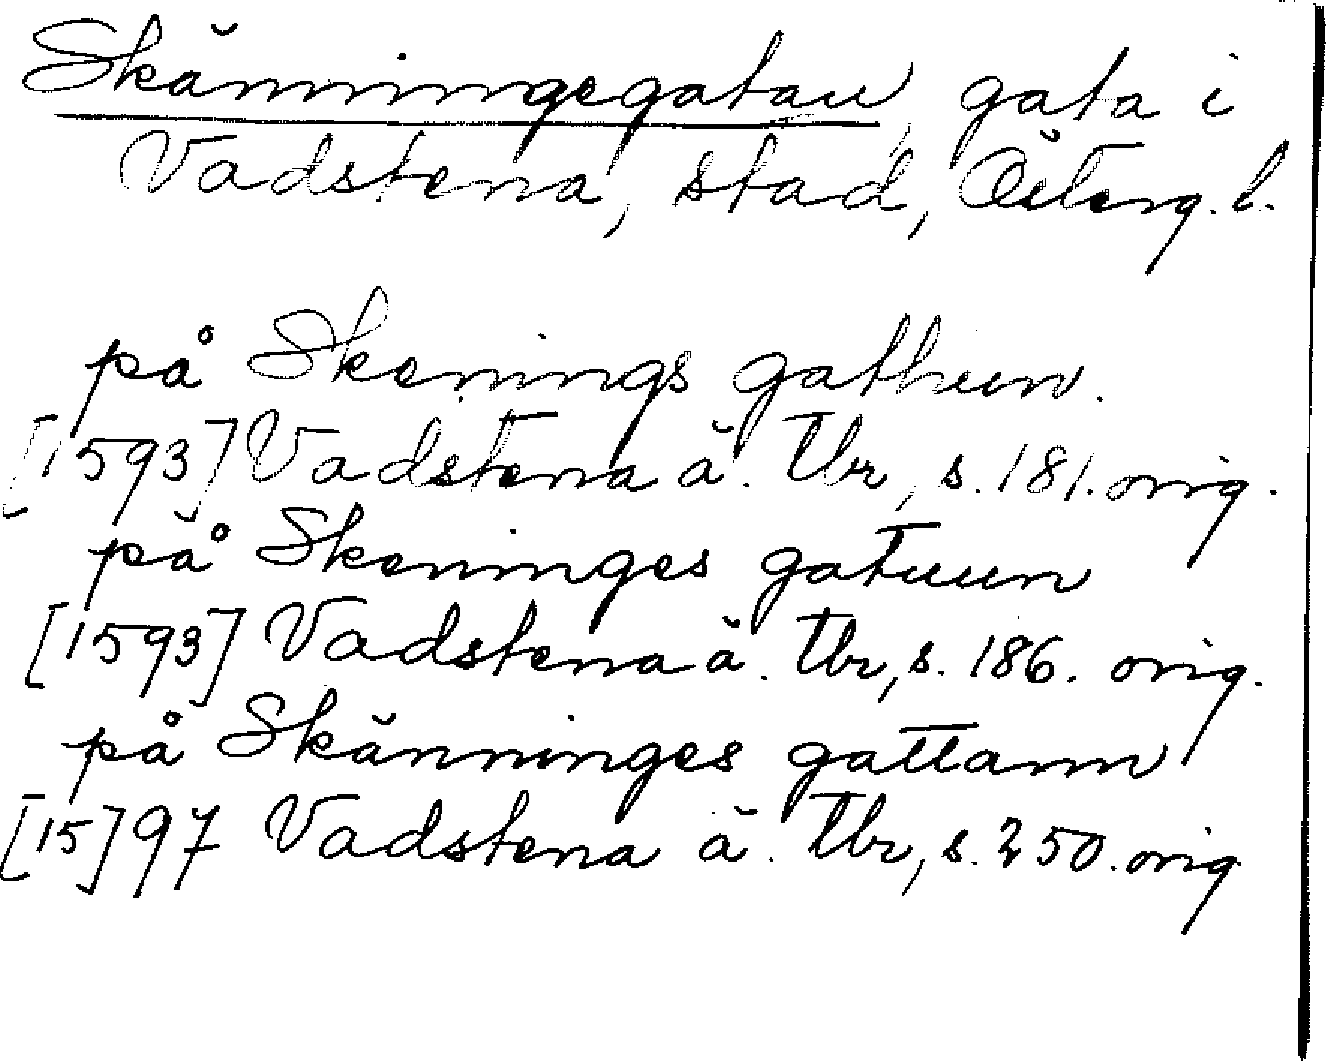 Skänningegatan, gata i
Vadstena, stad, Österg. l.
på Skenings gathun.
[1593] Vadstena ä. tbr, s. 181. orig.
på Skeninges gatuun
[1593] Vadstena ä. tbr, s. 186. orig.
på Skänninges gattann
[15]97 Vadstena ä. tbr, s. 250. orig